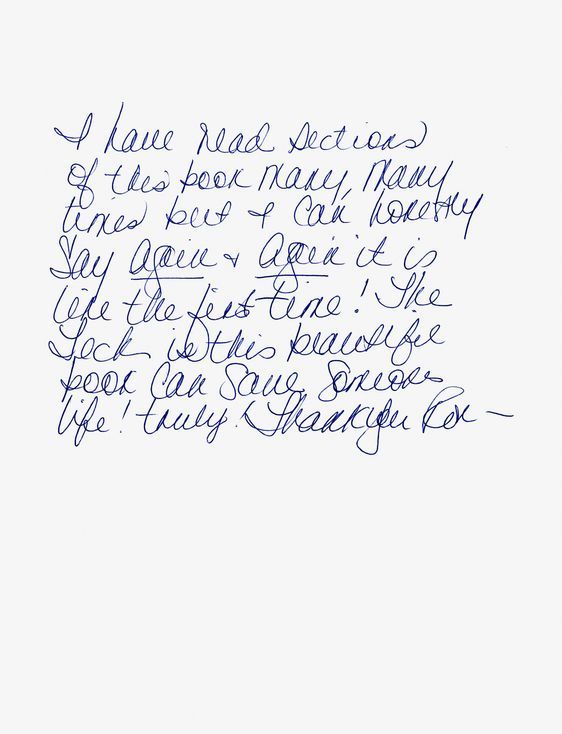 I have read sections
of this book many, many
times but I can honestly
say again & again it is
like the first time! The
Tech in this beautiful
book can save someones
life! truly! Thankyou Ron –